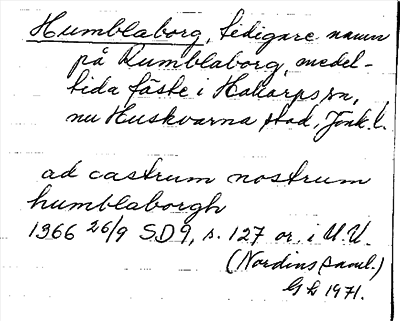 Humblaborg, tidigare namn
på Rumblaborg, medel-
tida fäste i Hakarps sn,
nu Huskvarna stad, Jönk. l.
ad castrum nostrum
humblaborgh
1366 26/9 SD9, s. 127 or. i U.U.
(Nordins saml.)
G L 1971.